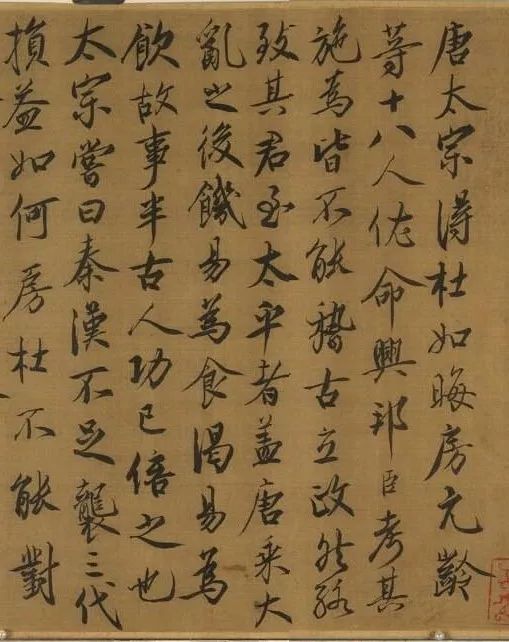 唐太宗得杜如晦房元齡
等十八人佐命興邦臣考其
施為皆不能稽古立政然殆
致其君至太平者蓋唐乘大
亂之後饑易為食渴易為
飲故事半古人功已倍之也
太宗嘗曰秦漢不足襲三代
損益如何房杜不能對